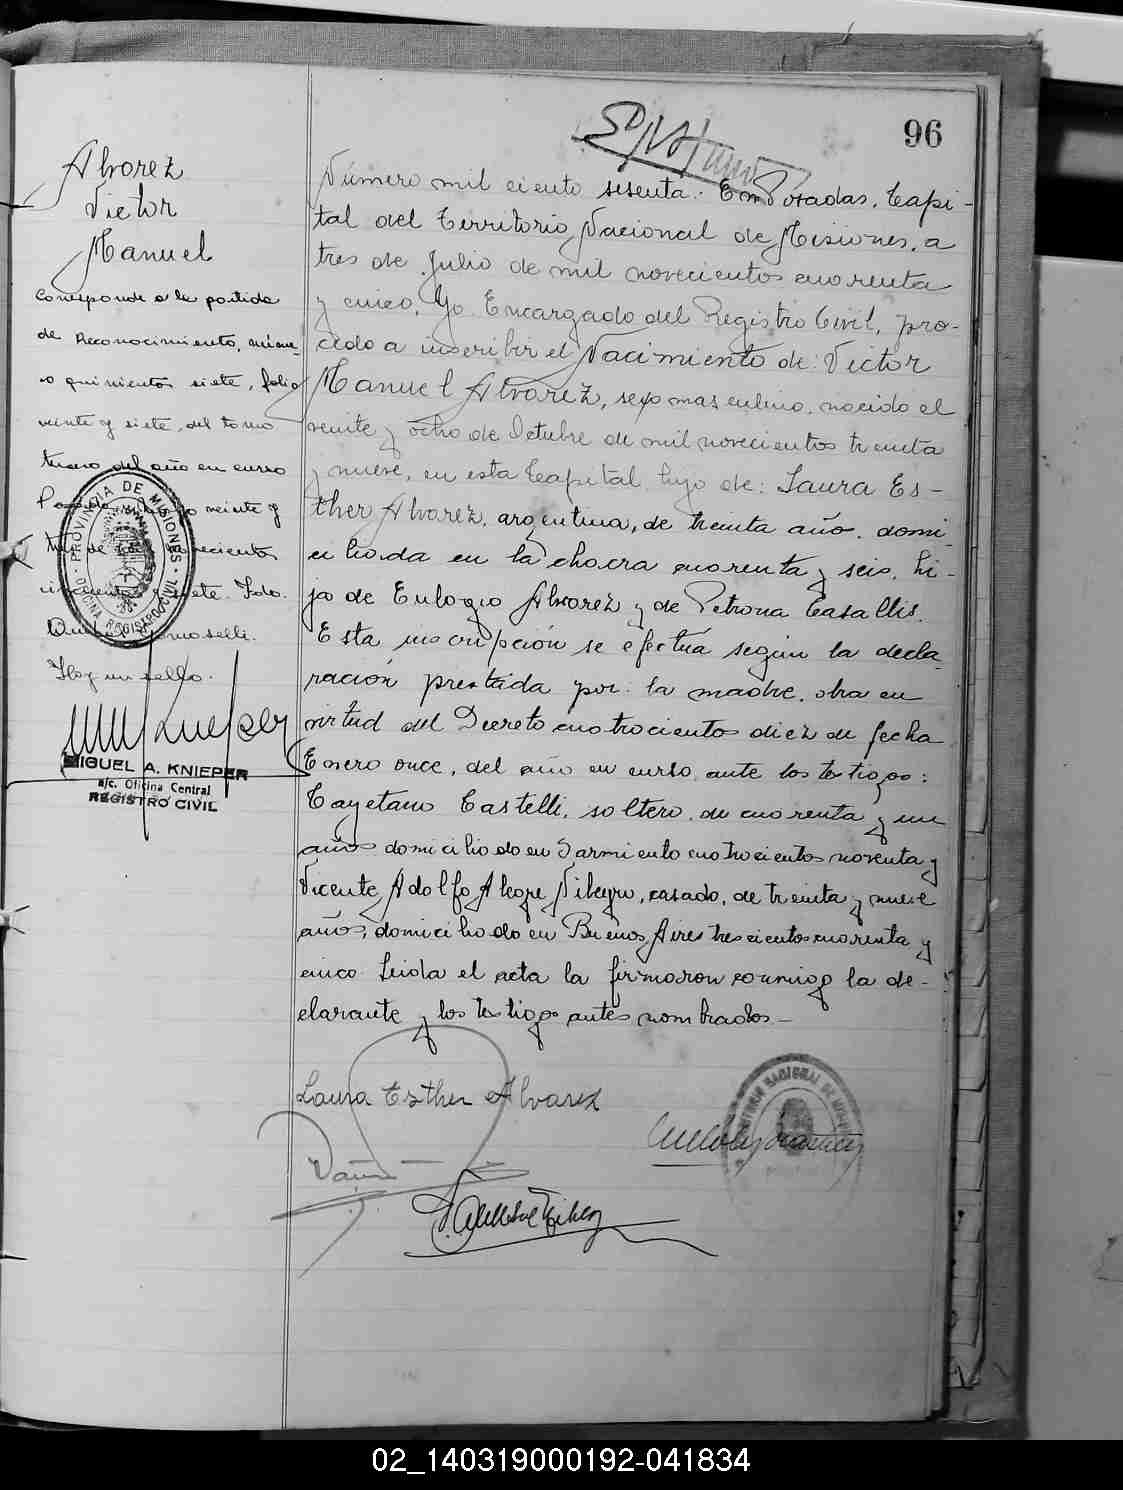 96
Alvarez
Victor
Manuel
Corresponde a la partida
de Reconocimiento, núme-
ro quinientos siete, folio
veinte y siete, del tomo
del año en curso
veinte y
de novecientos
siete. Fdo.
Hay un sello.
PROVINCIA DE MISIONES
OFICINA REGISTRO CIVIL
MIGUEL A. KNIEPER
a/c. Oficina Central
REGISTRO CIVIL
Número mil ciento sesenta. En Posadas, Capi-
tal del Territorio Nacional de Misiones, a
tres de Julio de mil novecientos cuarenta
y cinco, Yo Encargado del Registro Civil, pro-
cedo a inscribir el Nacimiento de: Victor
Manuel Alvarez, sexo masculino, nacido el
veinte y ocho de Octubre de mil novecientos treinta
y nueve, en esta Capital, hijo de: Laura Es-
ther Alvarez, argentina, de treinta año, domi-
ciliada en la chacra cuarenta y seis, hi-
ja de Eulogio Alvarez y de Petrona Casallis.
Esta inscripción se efectúa según la decla-
ración prestada por: la madre, obra en
virtud del Decreto cuatrocientos diez de fecha
Enero once, del año en curso, ante los testigos:
Cayetano Castelli, soltero, de cuarenta y un
años domiciliado en Sarmiento cuatrocientos noventa y
Vicente Adolfo Alegre, casado, de treinta y nueve
años, domiciliado en Buenos Aires trescientos cuarenta y
cinco. Leida el acta la firmaron conmigo la de-
clarante y los testigos antes nombrados.—
Laura Esther Alvarez
02_140319000192-041834